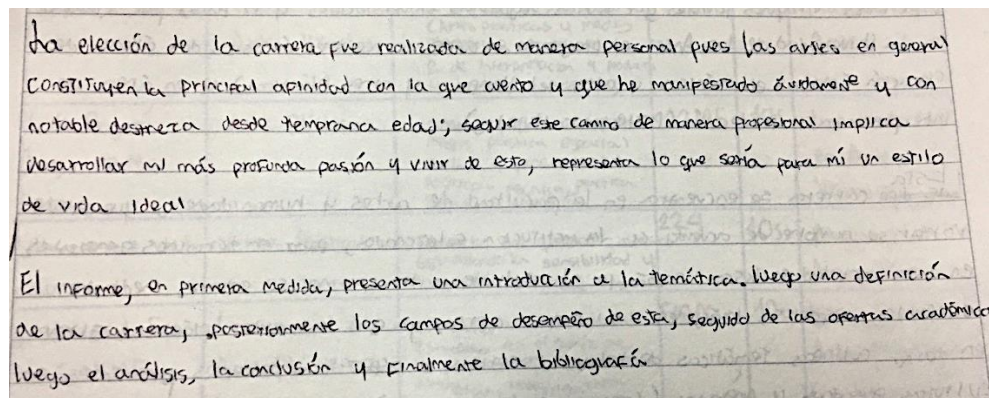 La elección de la carrera fue realizada de manera personal pues las artes en general
constituyen la principal afinidad con la que cuento y que he manifestado ávidamente y con
notable destreza desde temprana edad; seguir este camino de manera profesional implica
desarrollar mi más profunda pasión y vivir de esto, representa lo que sería para mí un estilo
de vida ideal
El informe, en primera medida, presenta una introducción a la temática. luego una definición
de la carrera, posteriormente los campos de desempeño de esta, seguido de las ofertas académica
luego el análisis, la conclusión y finalmente la bibliografía